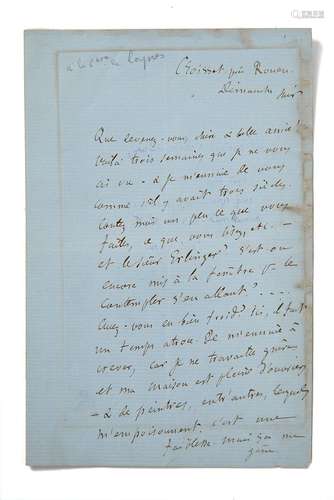 à la Ctesse de Loynes
Croisset près Rouen.
Dimanche soir
Que devenez-vous, chère & belle amie?
Voilà trois semaines que je ne vous
ai vue – & je m'ennuie de vous
comme s'il y avait trois siècles.
Contez-moi un peu ce que vous
faites, ce que vous lisez, etc –
et le sieur Erlinger? S'est-on
encore mis à la fenêtre pr le
contempler s'en allant? ....
Avez-vous eu bien froid? Ici, il fait
un temps atroce. Je m'ennuie à
crever, car je ne travaille guère
et ma maison est pleine d'ouvriers
– & de peintres, entr'autres, lesquels
m'empoisonnent. c'est une
faiblesse mais ça me
gêne